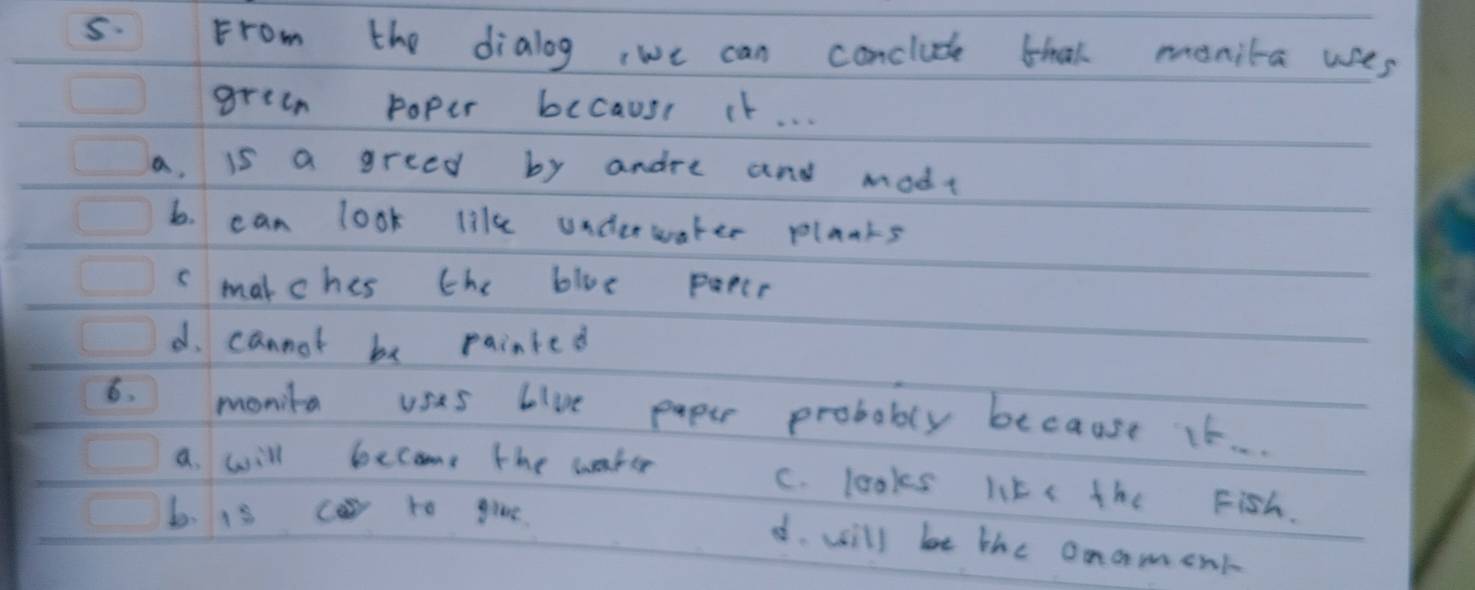 5. From the dialog, we can conclude that monita uses
green poper because it...
a. is a greed by andre and made
b. can look like underwater plants
c matches the blue paper
d. cannot be painted
6. monita uses blue paper probobly because it...
a. will become the water c. looks like the Fish.
b. is to glue. d. will be the onament